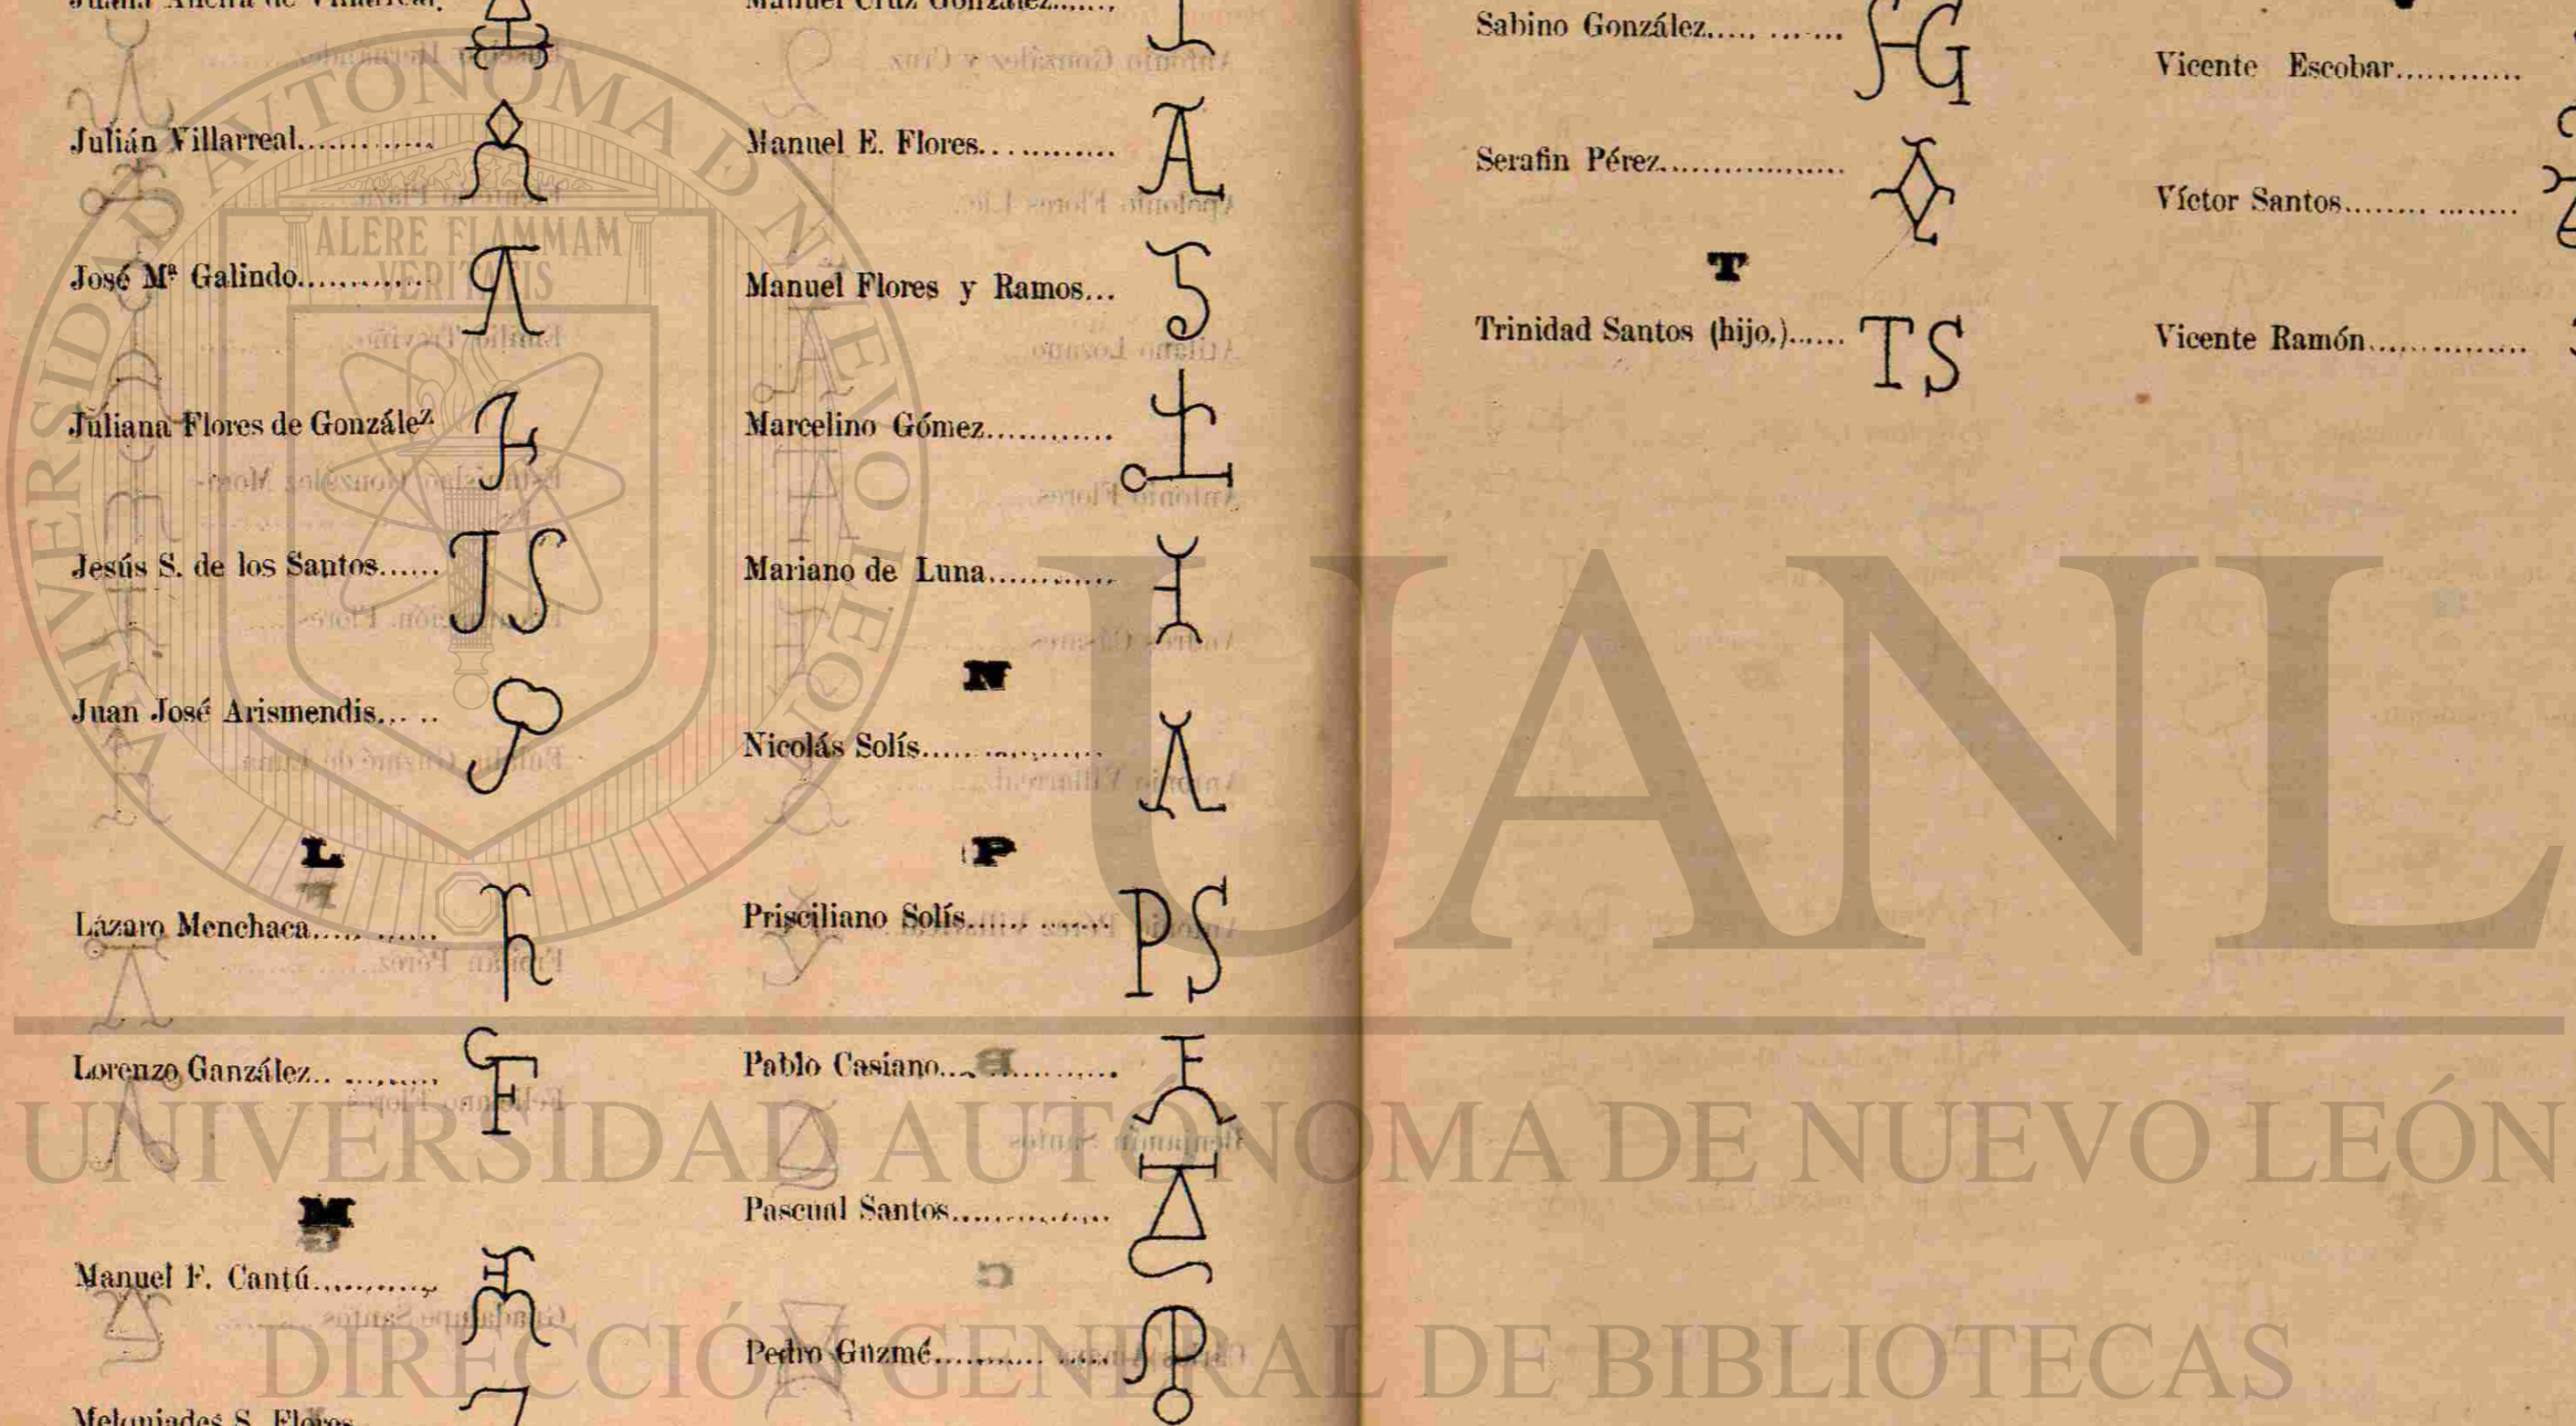 Julián Villarreal.............
José Mª Galindo............
Juliana Flores de González
Jesús S. de los Santos......
JS
Juan José Arismendis.....
L
Lázaro Menchaca............
Lorenzo Ganzález............
M
Manuel F. Cantú...........
Manuel Cruz González.......
Manuel E. Flores.............
Manuel Flores y Ramos...
Marcelino Gómez............
Mariano de Luna.............
N
Nicolás Solís..................
P
Prisciliano Solís...............
PS
Pablo Casiano..................
Pascual Santos................
Pedro Guzmé..................
Sabino González..........
Serafin Pérez..................
T
Trinidad Santos (hijo.)......
TS
Vicente Escobar............
Víctor Santos................
Vicente Ramón...............
UNIVERSIDAD AUTONOMA DE NUEVO LEON
ALERE FLAMMAM
VERITATIS
UANL
UNIVERSIDAD AUTÓNOMA DE NUEVO LEÓN
DIRECCIÓN GENERAL DE BIBLIOTECAS